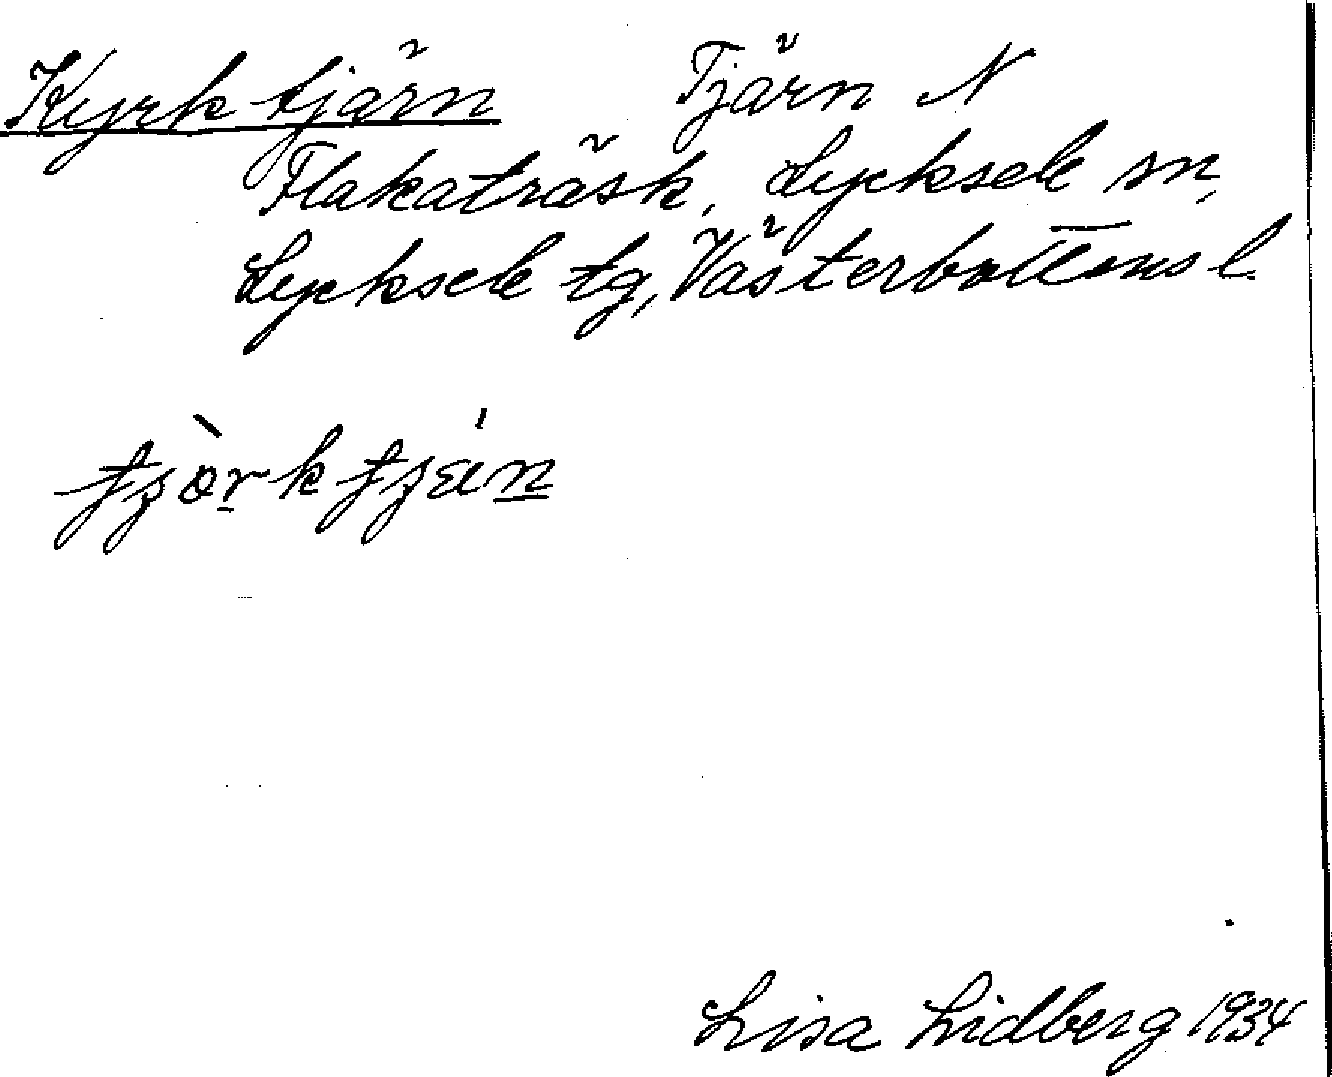 Kyrktjärn Tjärn N
Flakaträsk, Lycksele sn,
Lycksele tg, Västerbottens l.
Lisa Lidberg 1934